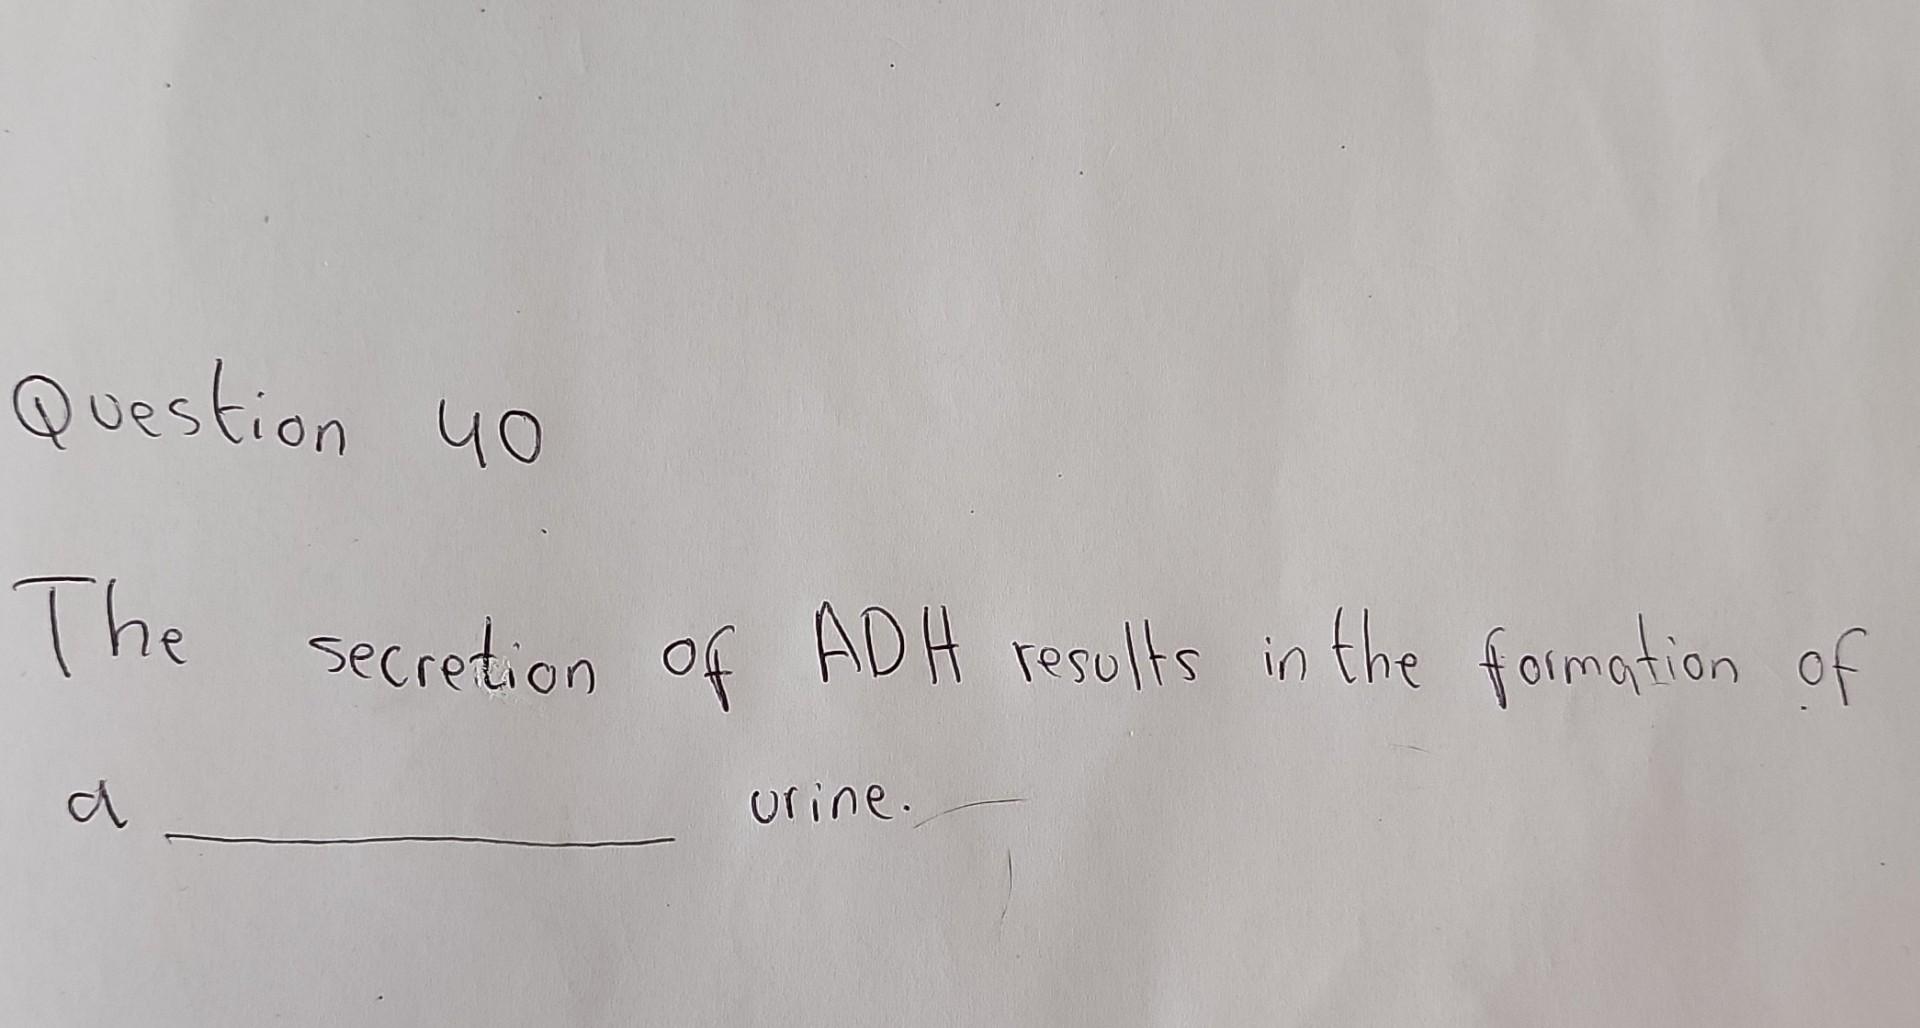 Question 40
The secretion of ADH results in the formation of
a __________ urine.